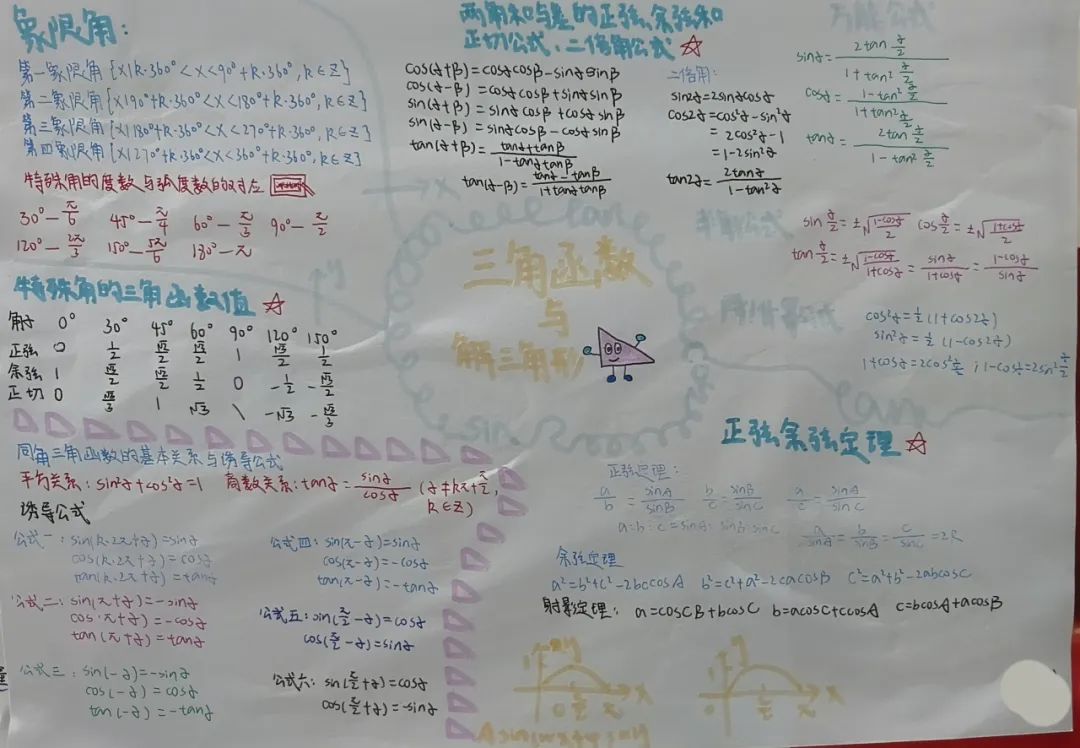 象限角:
第一象限角{x|k·360°<x<90°+k·360°,k∈Z}
第二象限角{x|90°+k·360°<x<180°+k·360°,k∈Z}
第三象限角{x|180°+k·360°<x<270°+k·360°,k∈Z}
第四象限角{x|270°+k·360°<x<360°+k·360°,k∈Z}
特殊角的度数与弧度数的对应
30°—π/6 45°—π/4 60°—π/3 90°—π/2
120°—2π/3 150°—5π/6 180°—π
特殊角的三角函数值 ☆
角α 0° 30° 45° 60° 90° 120° 150°
正弦 0 1/2 √2/2 √3/2 1 √3/2 1/2
余弦 1 √3/2 √2/2 1/2 0 -1/2 -√3/2
正切 0 √3/3 1 √3 \ -√3 -√3/3
同角三角函数的基本关系与诱导公式
平方关系:sin²α+cos²α=1 商数关系:tanα=sinα/cosα (α≠kπ+π/2,
k∈Z)
诱导公式
公式一:sin(k·2π+α)=sinα
cos(k·2π+α)=cosα
tan(k·2π+α)=tanα
公式二:sin(π+α)=-sinα
cos(π+α)=-cosα
tan(π+α)=tanα
公式三:sin(-α)=-sinα
cos(-α)=cosα
tan(-α)=-tanα
公式四:sin(π-α)=sinα
cos(π-α)=-cosα
tan(π-α)=-tanα
公式五:sin(π/2-α)=cosα
cos(π/2-α)=sinα
公式六:sin(π/2+α)=cosα
cos(π/2+α)=-sinα
两角和与差的正弦、余弦和
正切公式、二倍角公式 ☆
cos(α+β)=cosαcosβ-sinαsinβ
cos(α-β)=cosαcosβ+sinαsinβ
sin(α+β)=sinαcosβ+cosαsinβ
sin(α-β)=sinαcosβ-cosαsinβ
tan(α+β)=(tanα+tanβ)/(1-tanαtanβ)
tan(α-β)=(tanα-tanβ)/(1+tanαtanβ)
二倍角:
sin2α=2sinαcosα
cos2α=cos²α-sin²α
=2cos²α-1
=1-2sin²α
tan2α=2tanα/(1-tan²α)
三角函数
与
解三角形
万能公式
sinα=2tan α/2 / (1+tan² α/2)
cosα=(1-tan² α/2)/(1+tan² α/2)
tanα=2tan α/2 / (1-tan² α/2)
半角公式
sin α/2=±√((1-cosα)/2) cos α/2=±√((1+cosα)/2)
tan α/2=±√((1-cosα)/(1+cosα))=sinα/(1+cosα)=(1-cosα)/sinα
降/升幂公式
cos²α=1/2(1+cos2α)
sin²α=1/2(1-cos2α)
1+cosα=2cos² α/2;1-cosα=2sin² α/2
正弦余弦定理 ☆
正弦定理:
a/b=sinA/sinB b/c=sinB/sinC a/c=sinA/sinC
a:b:c=sinA:sinB:sinC a/sinA=b/sinB=c/sinC=2R
余弦定理
a²=b²+c²-2bccosA b²=c²+a²-2cacosB c²=a²+b²-2abcosC
射影定理: a=cosCB+bcosC b=acosC+ccosA c=bcosA+acosB
y
0 π/2 π x
y
π/2 π x